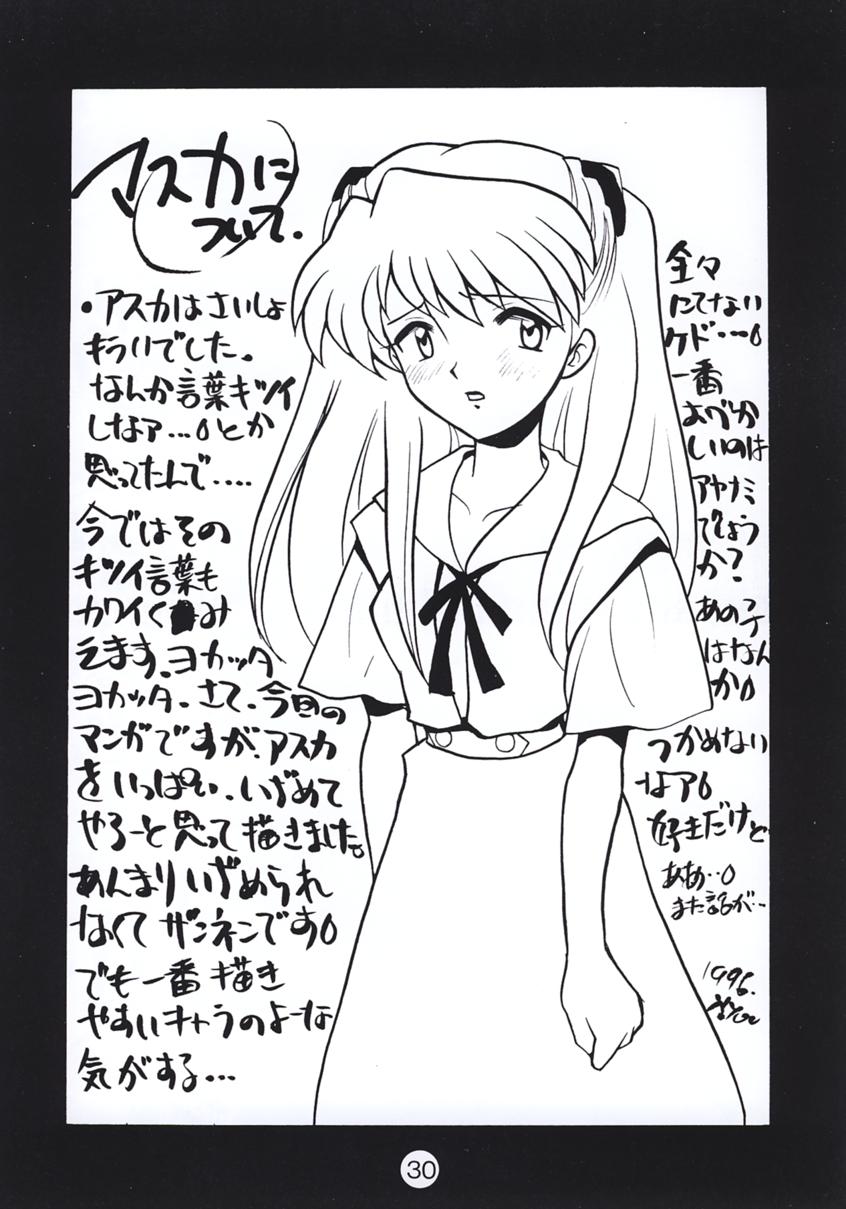 アスカに
ついて.
・アスカはさいしょ
キライでした。
なんか言葉キツイ
しなァ...とか
思ってたんで....
今ではその
キツイ言葉も
カワイくみ
えます。ヨカッタ
ヨカッタ.さて、今回の
マンガですが、アスカ
をいっぱい、いぢめて
やろーと思って描きました。
あんまりいぢめられ
なくてザンネンです
でも一番描き
やすいキャラのよーな
気がする...
全々
にてない
ケド...
一番
むづか
しいのは
アヤナミ
でしょう
か?
あの子
はなん
か
つかめない
なア
好きだけど
ああ..
また話が..
1996.
30